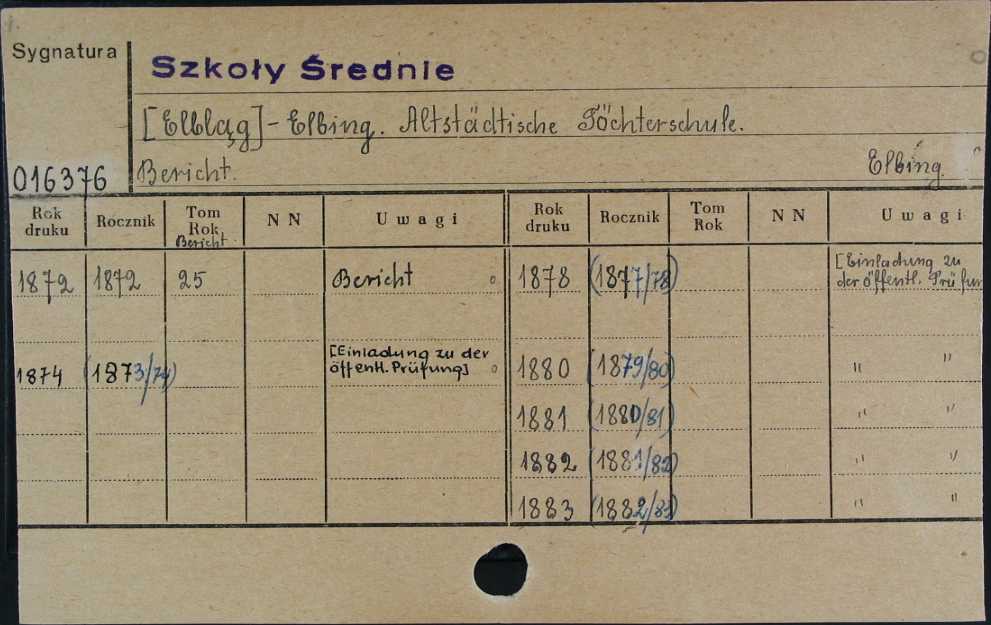 Sygnatura
Szkoły Średnie
[Elbląg] - Elbing. Altstädtische Töchterschule.
016376 Bericht. Elbing.
Rok druku Rocznik Tom Rok Bericht N N Uwagi Rok druku Rocznik Tom Rok N N Uwagi
1872 1872 25 Bericht 1878 (1877/78) [Einladung zu
der öffentl. Prüfun
1874 (1873/74) [Einladung zu der
öffentl. Prüfung] 1880 (1879/80) " "
1881 (1880/81) " "
1882 (1881/82) " "
1883 (1882/83) " "